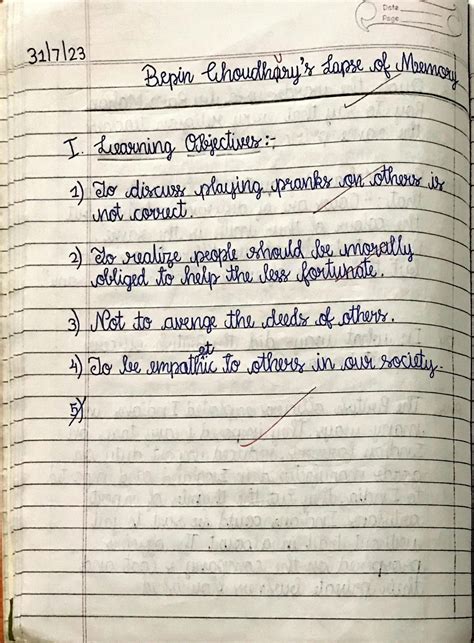 Date
Page
31/7/23
Bepin Choudhary's Lapse of Memory
I. Learning Objectives:-
1) To discuss playing pranks on others is
not correct.
2) To realize people should be morally
obliged to help the less fortunate.
3) Not to avenge the deeds of others.
et
4) To be empathic to others in our society.
5)